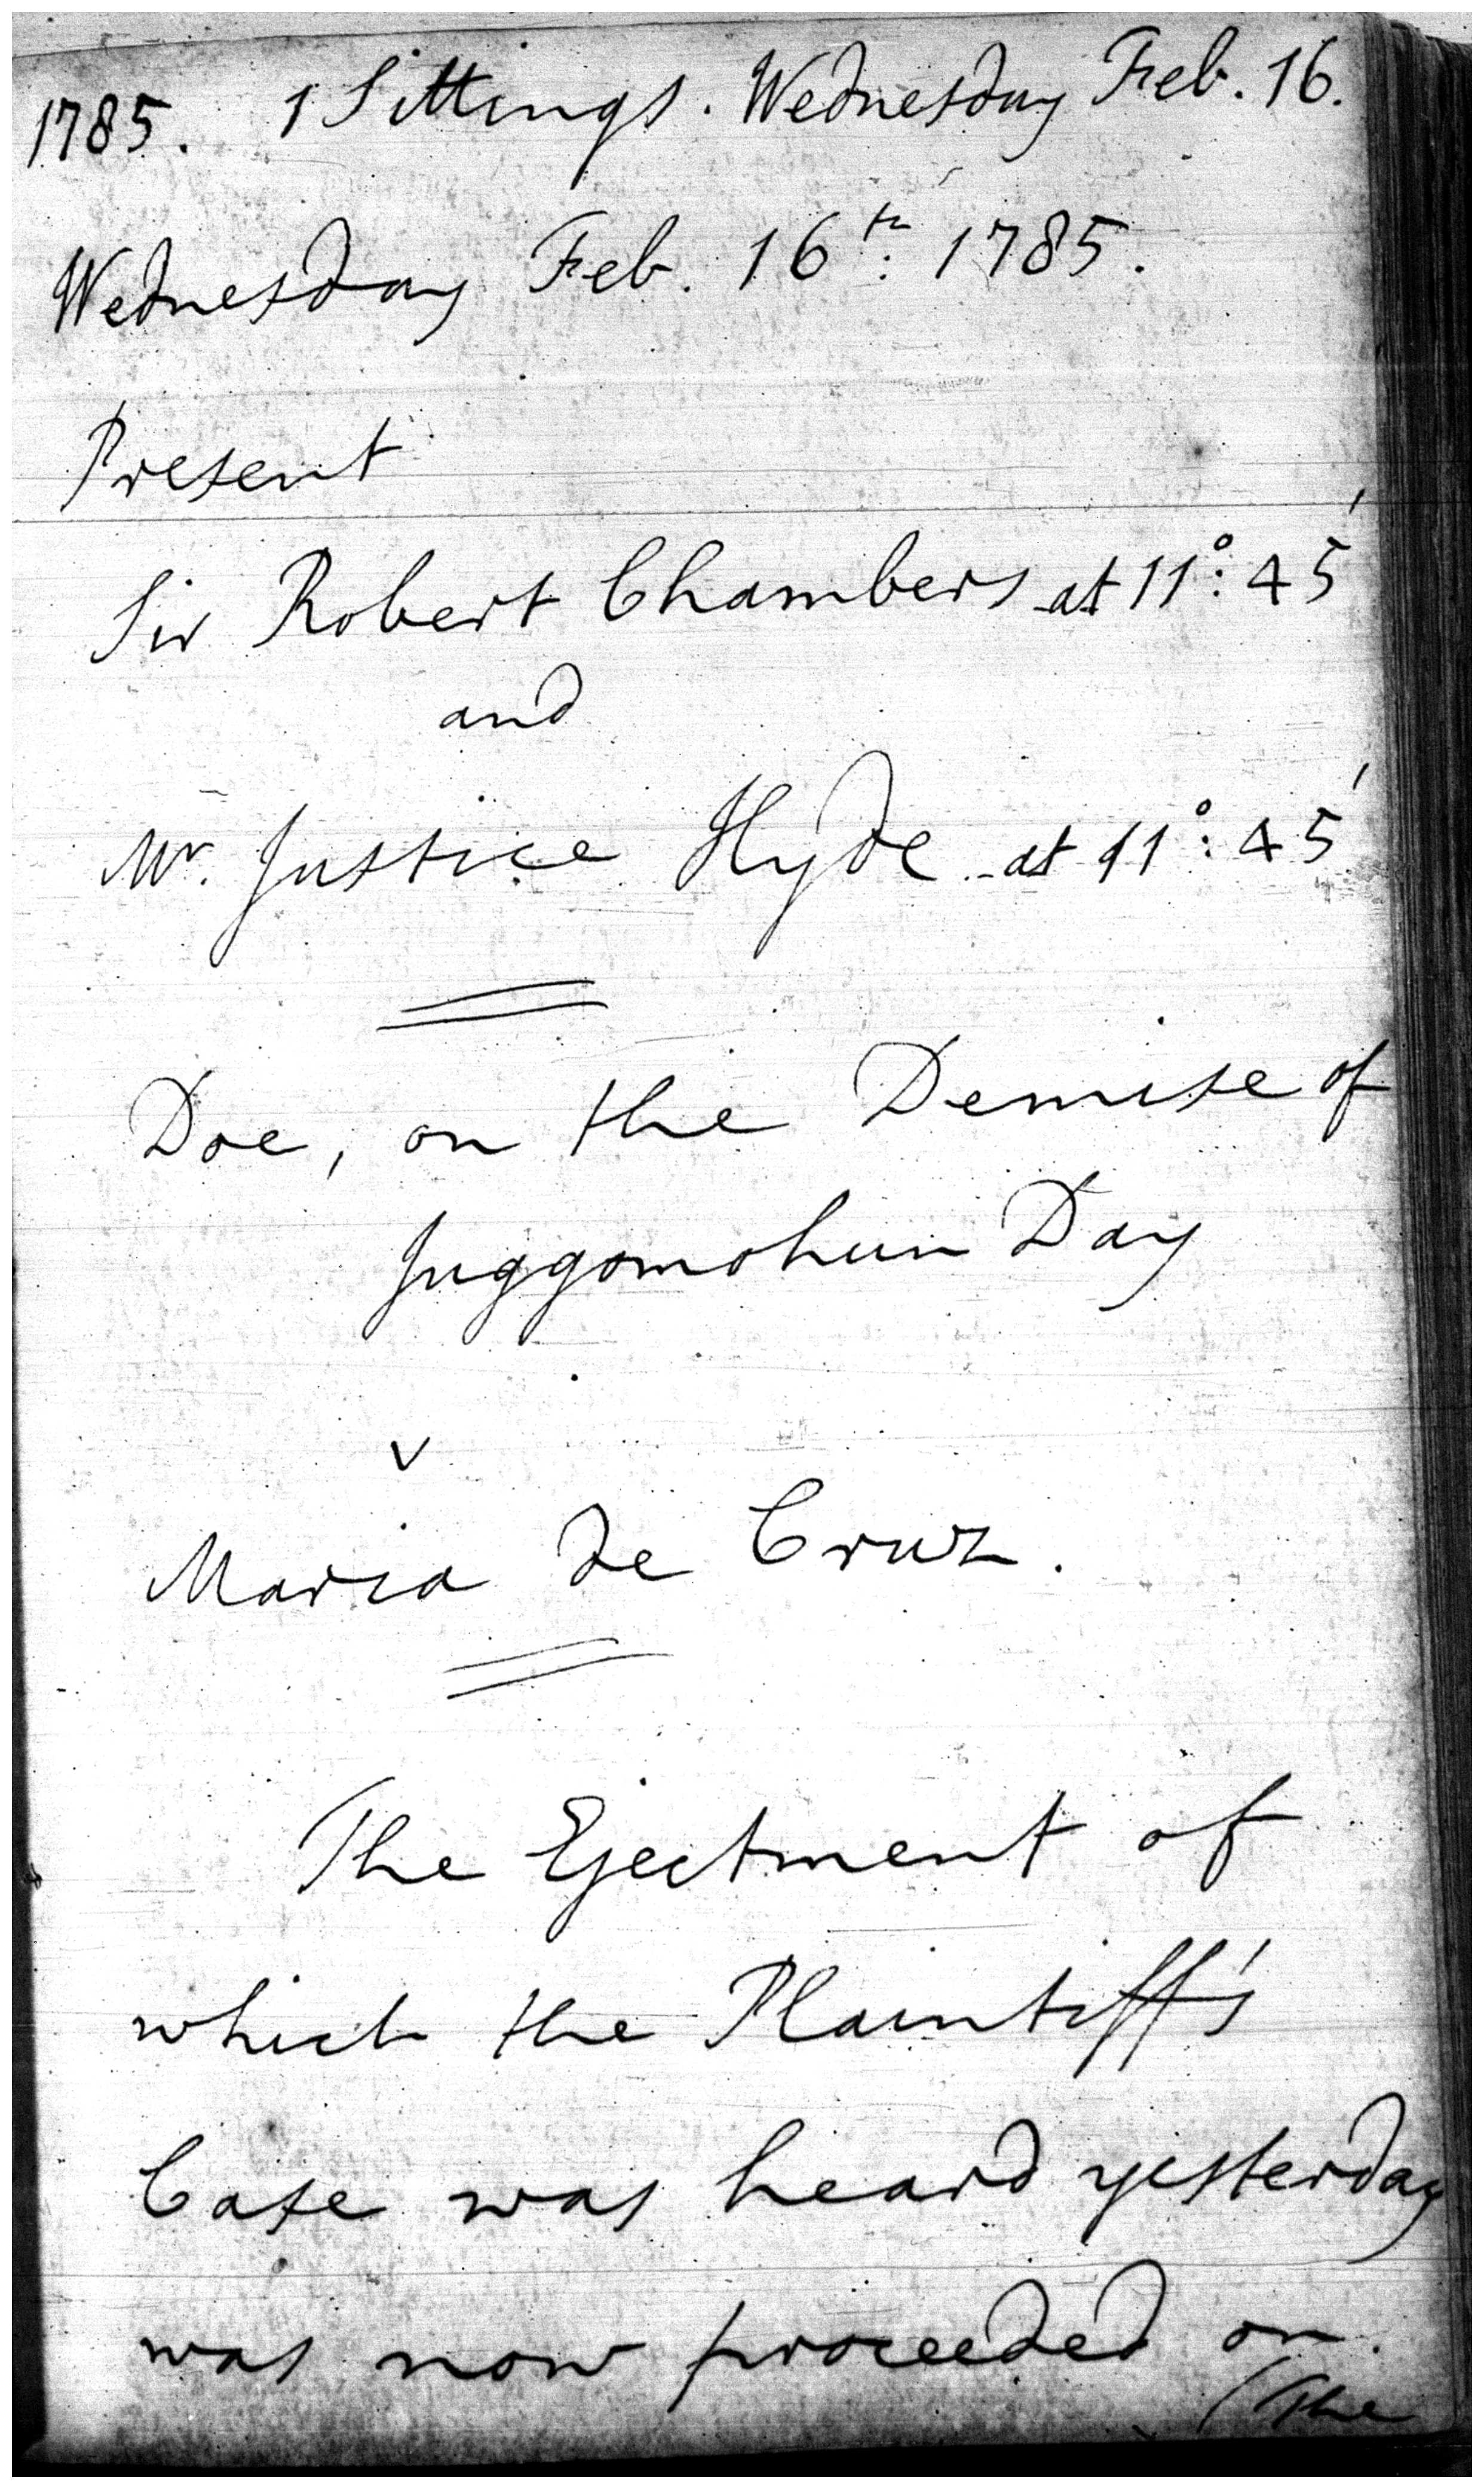 1785. 1 Sittings. Wednesday Feb. 16.
Wednesday Feb. 16th. 1785.
Present
Sir Robert Chambers at 11°: 45'
and
Mr. Justice Hyde at 11°: 45'
Doe, on the Demise of
Juggomohun Day
v
Maria de Cruz.
The Ejectment of
which the Plaintiff's
Case was heard yesterday
was now proceeded on.
(The